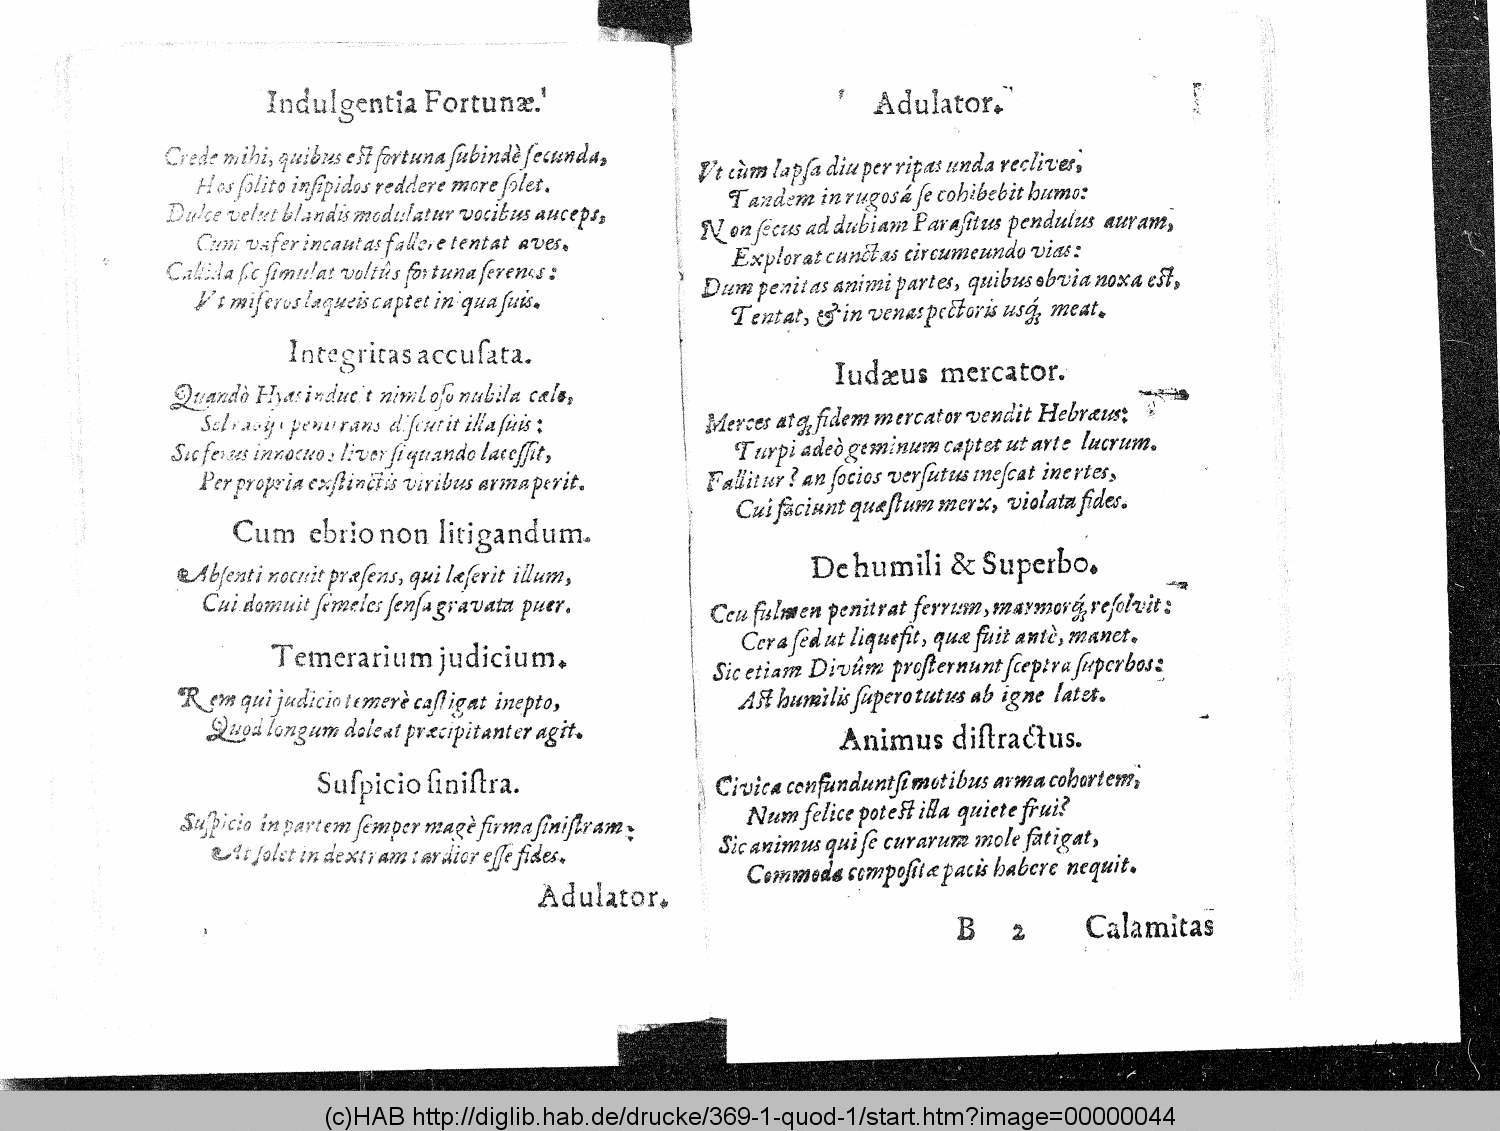 Indulgentia Fortunæ.
Crede mihi, quibus est fortuna ſubindè ſecunda,
Hos ſolito inſipidos reddere more ſolet.
Dulce velut blandis modulatur vocibus auceps,
Cum vafer incautas fallere tentat aves.
Callida ſic ſimulat voltûs fortuna ſerenos:
Vt miſeros laqueis captet iniqua ſuis.
Integritas accuſata.
Quandò Hyas inducit nimboſo nubila cælo,
Sol penetrans diſcutit illa ſuis:
Sic ferus innocuos livor ſi quando laceſſit,
Per propria exſtinctis viribus arma perit.
Cum ebrio non litigandum.
Abſenti nocuit præſens, qui læſerit illum,
Cui domuit ſemeles ſenſa gravata puer.
Temerarium judicium.
Rem qui judicio temerè caſtigat inepto,
Quod longum doleat præcipitanter agit.
Suſpicio ſiniſtra.
Suſpicio in partem ſemper magè firma ſiniſtram;
At ſolet in dextram tardior eſſe fides.
Adulator.
Adulator.
Vt cùm lapſa diu per ripas unda reclives,
Tandem in rugosâ ſe cohibebit humo:
Non ſecus ad dubiam Paraſitus pendulus auram,
Explorat cunctas circumeundo vias:
Dum penitas animi partes, quibus obvia noxa est,
Tentat, & in venas pectoris usq; meat.
Iudæus mercator.
Merces atq; fidem mercator vendit Hebræus;
Turpi adeò geminum captet ut arte lucrum.
Fallitur? an ſocios verſutus ineſcat inertes,
Cui faciunt quæſtum merx, violata fides.
De humili & Superbo.
Ceu fulmen penitrat ferrum, marmorq; reſolvit:
Cera ſed ut liquefit, quæ fuit antè, manet.
Sic etiam Divûm proſternunt ſceptra ſuperbos:
Ast humilis ſupero tutus ab igne latet.
Animus diſtractus.
Civica confundunt ſi motibus arma cohortem,
Num felice potest illa quiete frui?
Sic animus qui ſe curarum mole fatigat,
Commoda compoſitæ pacis habere nequit.
B 2 Calamitas
(c)HAB http://diglib.hab.de/drucke/369-1-quod-1/start.htm?image=00000044